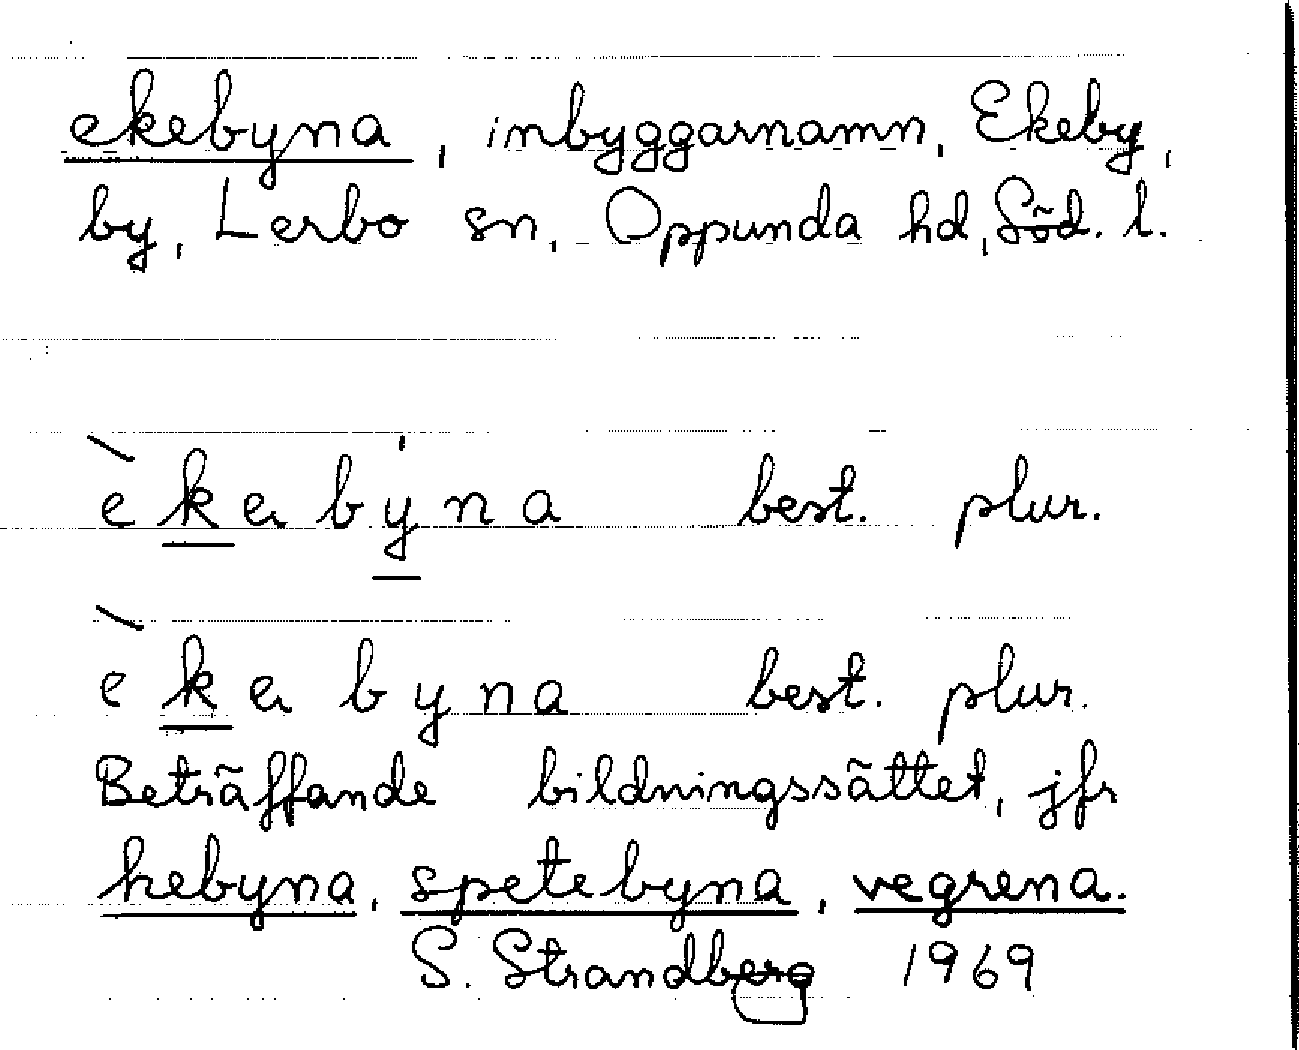 ekebyna, inbyggarnamn, Ekeby,
by, Lerbo sn, Oppunda hd, Söd. l.
èkebýna best. plur.
èkebyna best. plur.
Beträffande bildningssättet, jfr
hebyna, spetebyna, vegrena.
S. Strandberg 1969